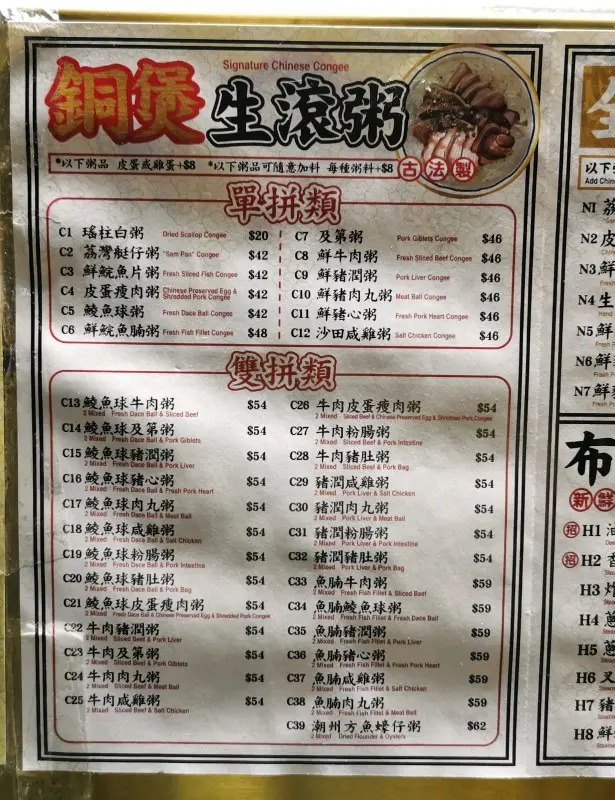 Signature Chinese Congee
銅煲生滾粥
*以下粥品 皮蛋或雞蛋+$8 *以下粥品可隨意加料 每種粥料+$8
古法製
單拼類
C1 瑤柱白粥 Dried Scallop Congee $20
C2 荔灣艇仔粥 "Sam Pan" Congee $42
C3 鮮鯇魚片粥 Fresh Sliced Fish Congee $42
C4 皮蛋瘦肉粥 Chinese Preserved Egg & Shredded Pork Congee $42
C5 鯪魚球粥 Fresh Dace Ball Congee $42
C6 鮮鯇魚腩粥 Fresh Fish Fillet Congee $48
C7 及第粥 Pork Giblets Congee $46
C8 鮮牛肉粥 Fresh Sliced Beef Congee $46
C9 鮮豬潤粥 Pork Liver Congee $46
C10 鮮豬肉丸粥 Meat Ball Congee $46
C11 鮮豬心粥 Fresh Pork Heart Congee $46
C12 沙田咸雞粥 Salt Chicken Congee $46
雙拼類
C13 鯪魚球牛肉粥 $54
2 Mixed Fresh Dace Ball & Sliced Beef
C14 鯪魚球及第粥 $54
2 Mixed Fresh Dace Ball & Pork Giblets
C15 鯪魚球豬潤粥 $54
2 Mixed Fresh Dace Ball & Pork Liver
C16 鯪魚球豬心粥 $54
2 Mixed Fresh Dace Ball & Fresh Pork Heart
C17 鯪魚球肉丸粥 $54
2 Mixed Fresh Dace Ball & Meat Ball
C18 鯪魚球咸雞粥 $54
2 Mixed Fresh Dace Ball & Salt Chicken
C19 鯪魚球粉腸粥 $54
2 Mixed Fresh Dace Ball & Pork Intestine
C20 鯪魚球豬肚粥 $54
2 Mixed Fresh Dace Ball & Pork Bag
C21 鯪魚球皮蛋瘦肉粥 $54
2 Mixed Fresh Dace Ball & Chinese Preserved Egg & Shredded Pork Congee
C22 牛肉豬潤粥 $54
2 Mixed Sliced Beef & Pork Liver
C23 牛肉及第粥 $54
2 Mixed Sliced Beef & Pork Giblets
C24 牛肉肉丸粥 $54
2 Mixed Sliced Beef & Meat Ball
C25 牛肉咸雞粥 $54
2 Mixed Sliced Beef & Salt Chicken
C26 牛肉皮蛋瘦肉粥 $54
2 Mixed Sliced Beef & Chinese Preserved Egg & Shredded Pork Congee
C27 牛肉粉腸粥 $54
2 Mixed Sliced Beef & Pork Intestine
C28 牛肉豬肚粥 $54
2 Mixed Sliced Beef & Pork Bag
C29 豬潤咸雞粥 $54
2 Mixed Pork Liver & Salt Chicken
C30 豬潤肉丸粥 $54
2 Mixed Pork Liver & Meat Ball
C31 豬潤粉腸粥 $54
2 Mixed Pork Liver & Pork Intestine
C32 豬潤豬肚粥 $54
2 Mixed Pork Liver & Pork Bag
C33 魚腩牛肉粥 $59
2 Mixed Fresh Fish Fillet & Sliced Beef
C34 魚腩鯪魚球粥 $59
2 Mixed Fresh Fish Fillet & Fresh Dace Ball
C35 魚腩豬潤粥 $59
2 Mixed Fresh Fish Fillet & Pork Liver
C36 魚腩豬心粥 $59
2 Mixed Fresh Fish Fillet & Fresh Pork Heart
C37 魚腩咸雞粥 $59
2 Mixed Fresh Fish Fillet & Salt Chicken
C38 魚腩肉丸粥 $59
2 Mixed Fresh Fish Fillet & Meat Ball
C39 潮州方魚蠔仔粥 $62
2 Mixed Dried Flounder & Oysters
以下
Add Chin
N1
N2
N3 鮮
N4 生
N5 鮮
N6 鮮
N7
布
新鮮
招 H1
招 H2
H3 炸
H4 蔥
H5
H6 叉
H7 豬
H8 鮮